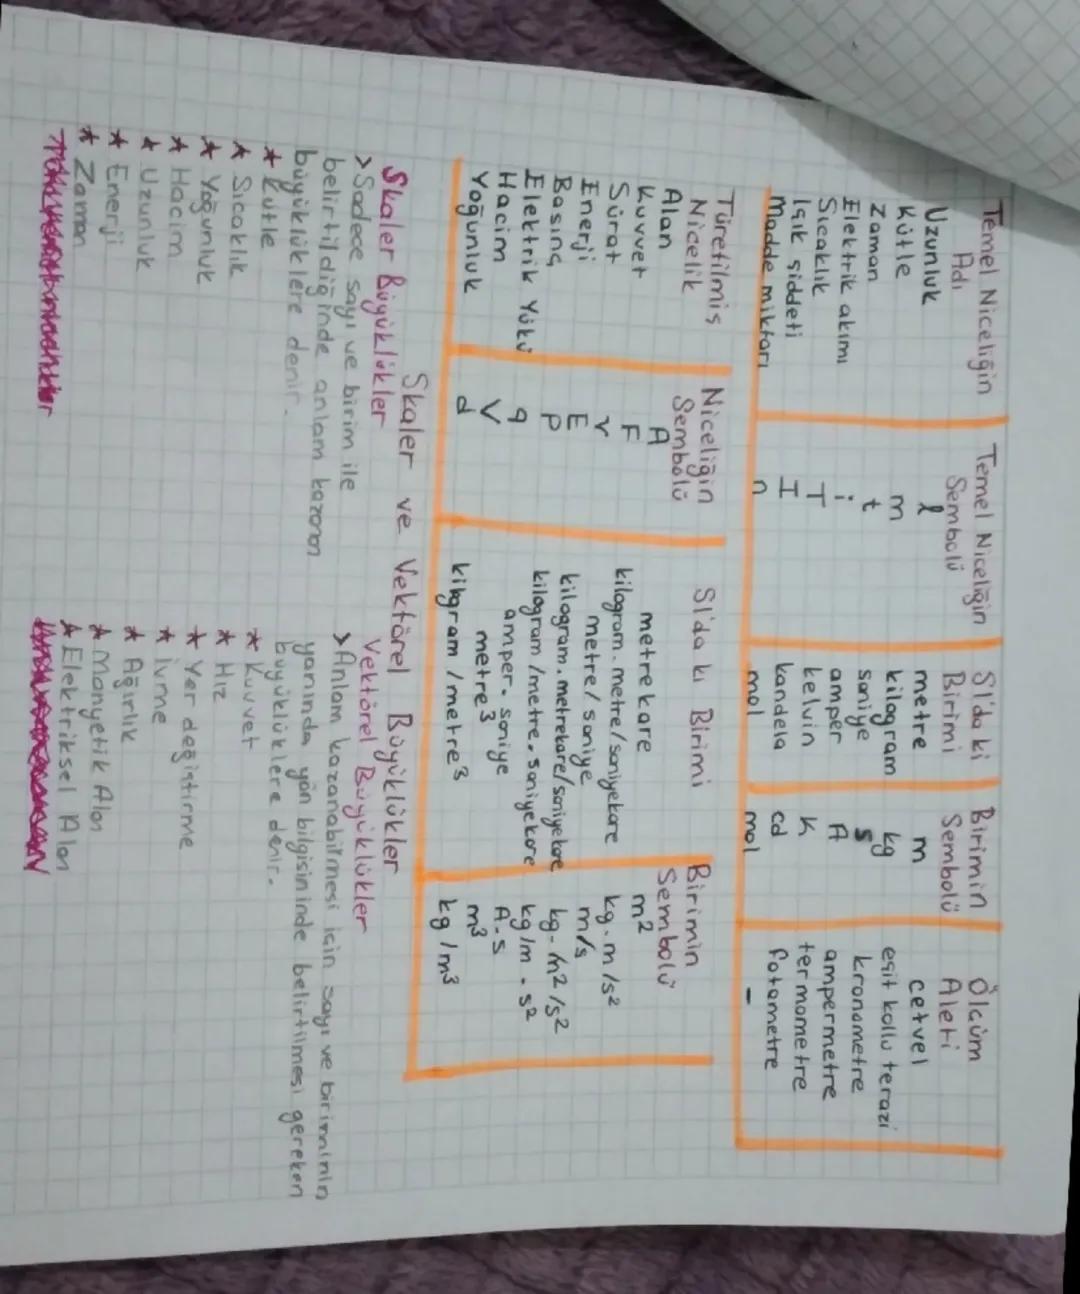 Temel Niceliğin Adı | Temel Niceliğin Sembolü | SI'da ki Birimi | Birimin Sembolü | Ölçüm Aleti
Uzunluk | l | metre | m | cetvel
Kütle | m | kilogram | kg | eşit kollu terazi
Zaman | t | saniye | s | kronometre
Elektrik akımı | i | amper | A | ampermetre
Sıcaklık | T | kelvin | K | termometre
Işık şiddeti | I | kandela | cd | fotometre
Madde miktarı | n | mol | mol | -
Türetilmiş Nicelik | Niceliğin Sembolü | SI'da ki Birimi | Birimin Sembolü
Alan | A | metrekare | m²
Kuvvet | F | kilogram.metre/saniyekare | kg.m/s²
Sürat | v | metre/saniye | m/s
Enerji | E | kilogram.metrekare/saniyekare | kg.m²/s²
Basınç | P | kilogram/metre.saniyekare | kg/m.s²
Elektrik Yükü | q | amper.saniye | A.s
Hacim | V | metre³ | m³
Yoğunluk | d | kilogram/metre³ | kg/m³
Skaler ve Vektörel Büyüklükler
Skaler Büyüklükler
>Sadece sayı ve birim ile
belirtildiğinde anlam kazanan
büyüklüklere denir.
* Kütle
* Sıcaklık
* Yoğunluk
* Hacim
* Uzunluk
* Enerji
* Zaman
Vektörel Büyüklükler
>Anlam kazanabilmesi için sayı ve biriminin
yanında yön bilgisininde belirtilmesi gereken
büyüklüklere denir.
* Kuvvet
* Hız
* Yer değiştirme
* İvme
* Ağırlık
* Manyetik Alan
* Elektriksel Alan